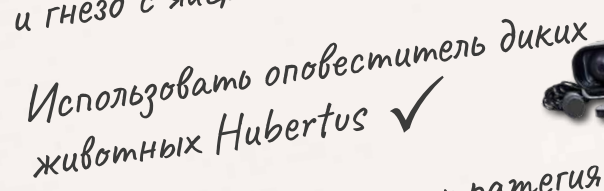 и гнездо с
Использовать оповеститель диких
животных Hubertus ✓